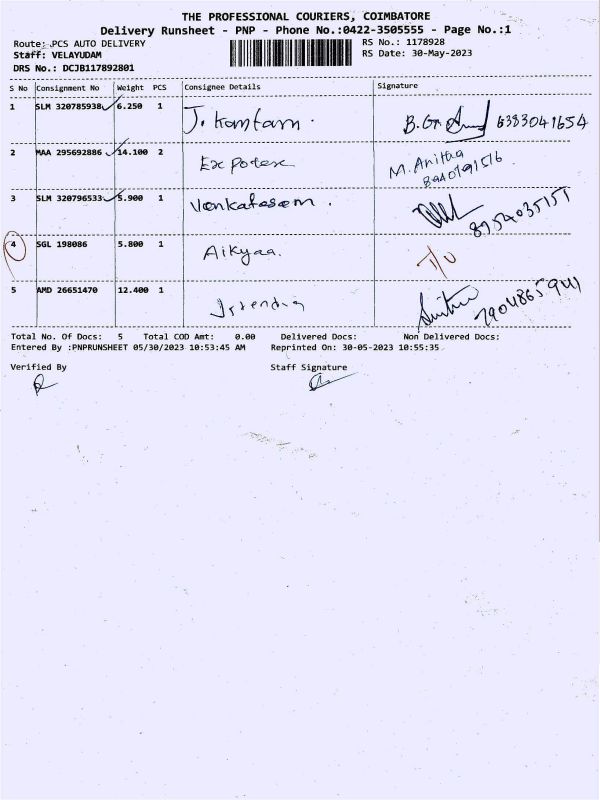 THE PROFESSIONAL COURIERS, COIMBATORE
Delivery Runsheet - PNP - Phone No.:0422-3505555 - Page No.:1
Route: PCS AUTO DELIVERY RS No.: 1178928
Staff: VELAYUDAM RS Date: 30-May-2023
DRS No.: DCJB117892801
S No Consignment No Weight PCS Consignee Details Signature
1 SLM 320785938 6.250 1 J. 6383041654
2 MAA 295692886 14.100 2 Expotex M. Anitha
3 SLM 320796533 5.900 1 Venkatesem . 8754035151
4 SGL 198086 5.800 1 Aikyaa.
5 AMD 26651470 12.400 1
Total No. Of Docs: 5 Total COD Amt: 0.00 Delivered Docs: Non Delivered Docs:
Entered By :PNPRUNSHEET 05/30/2023 10:53:45 AM Reprinted On: 30-05-2023 10:55:35
Verified By Staff Signature